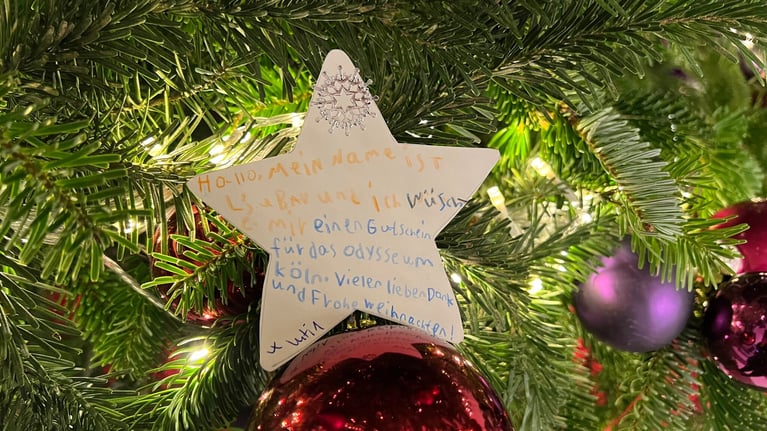 Hallo, mein Name ist
und ich wüsch
e mir einen Gutschein
für das Odysseum
Köln. Vielen lieben Dank
und Frohe weihnachten!